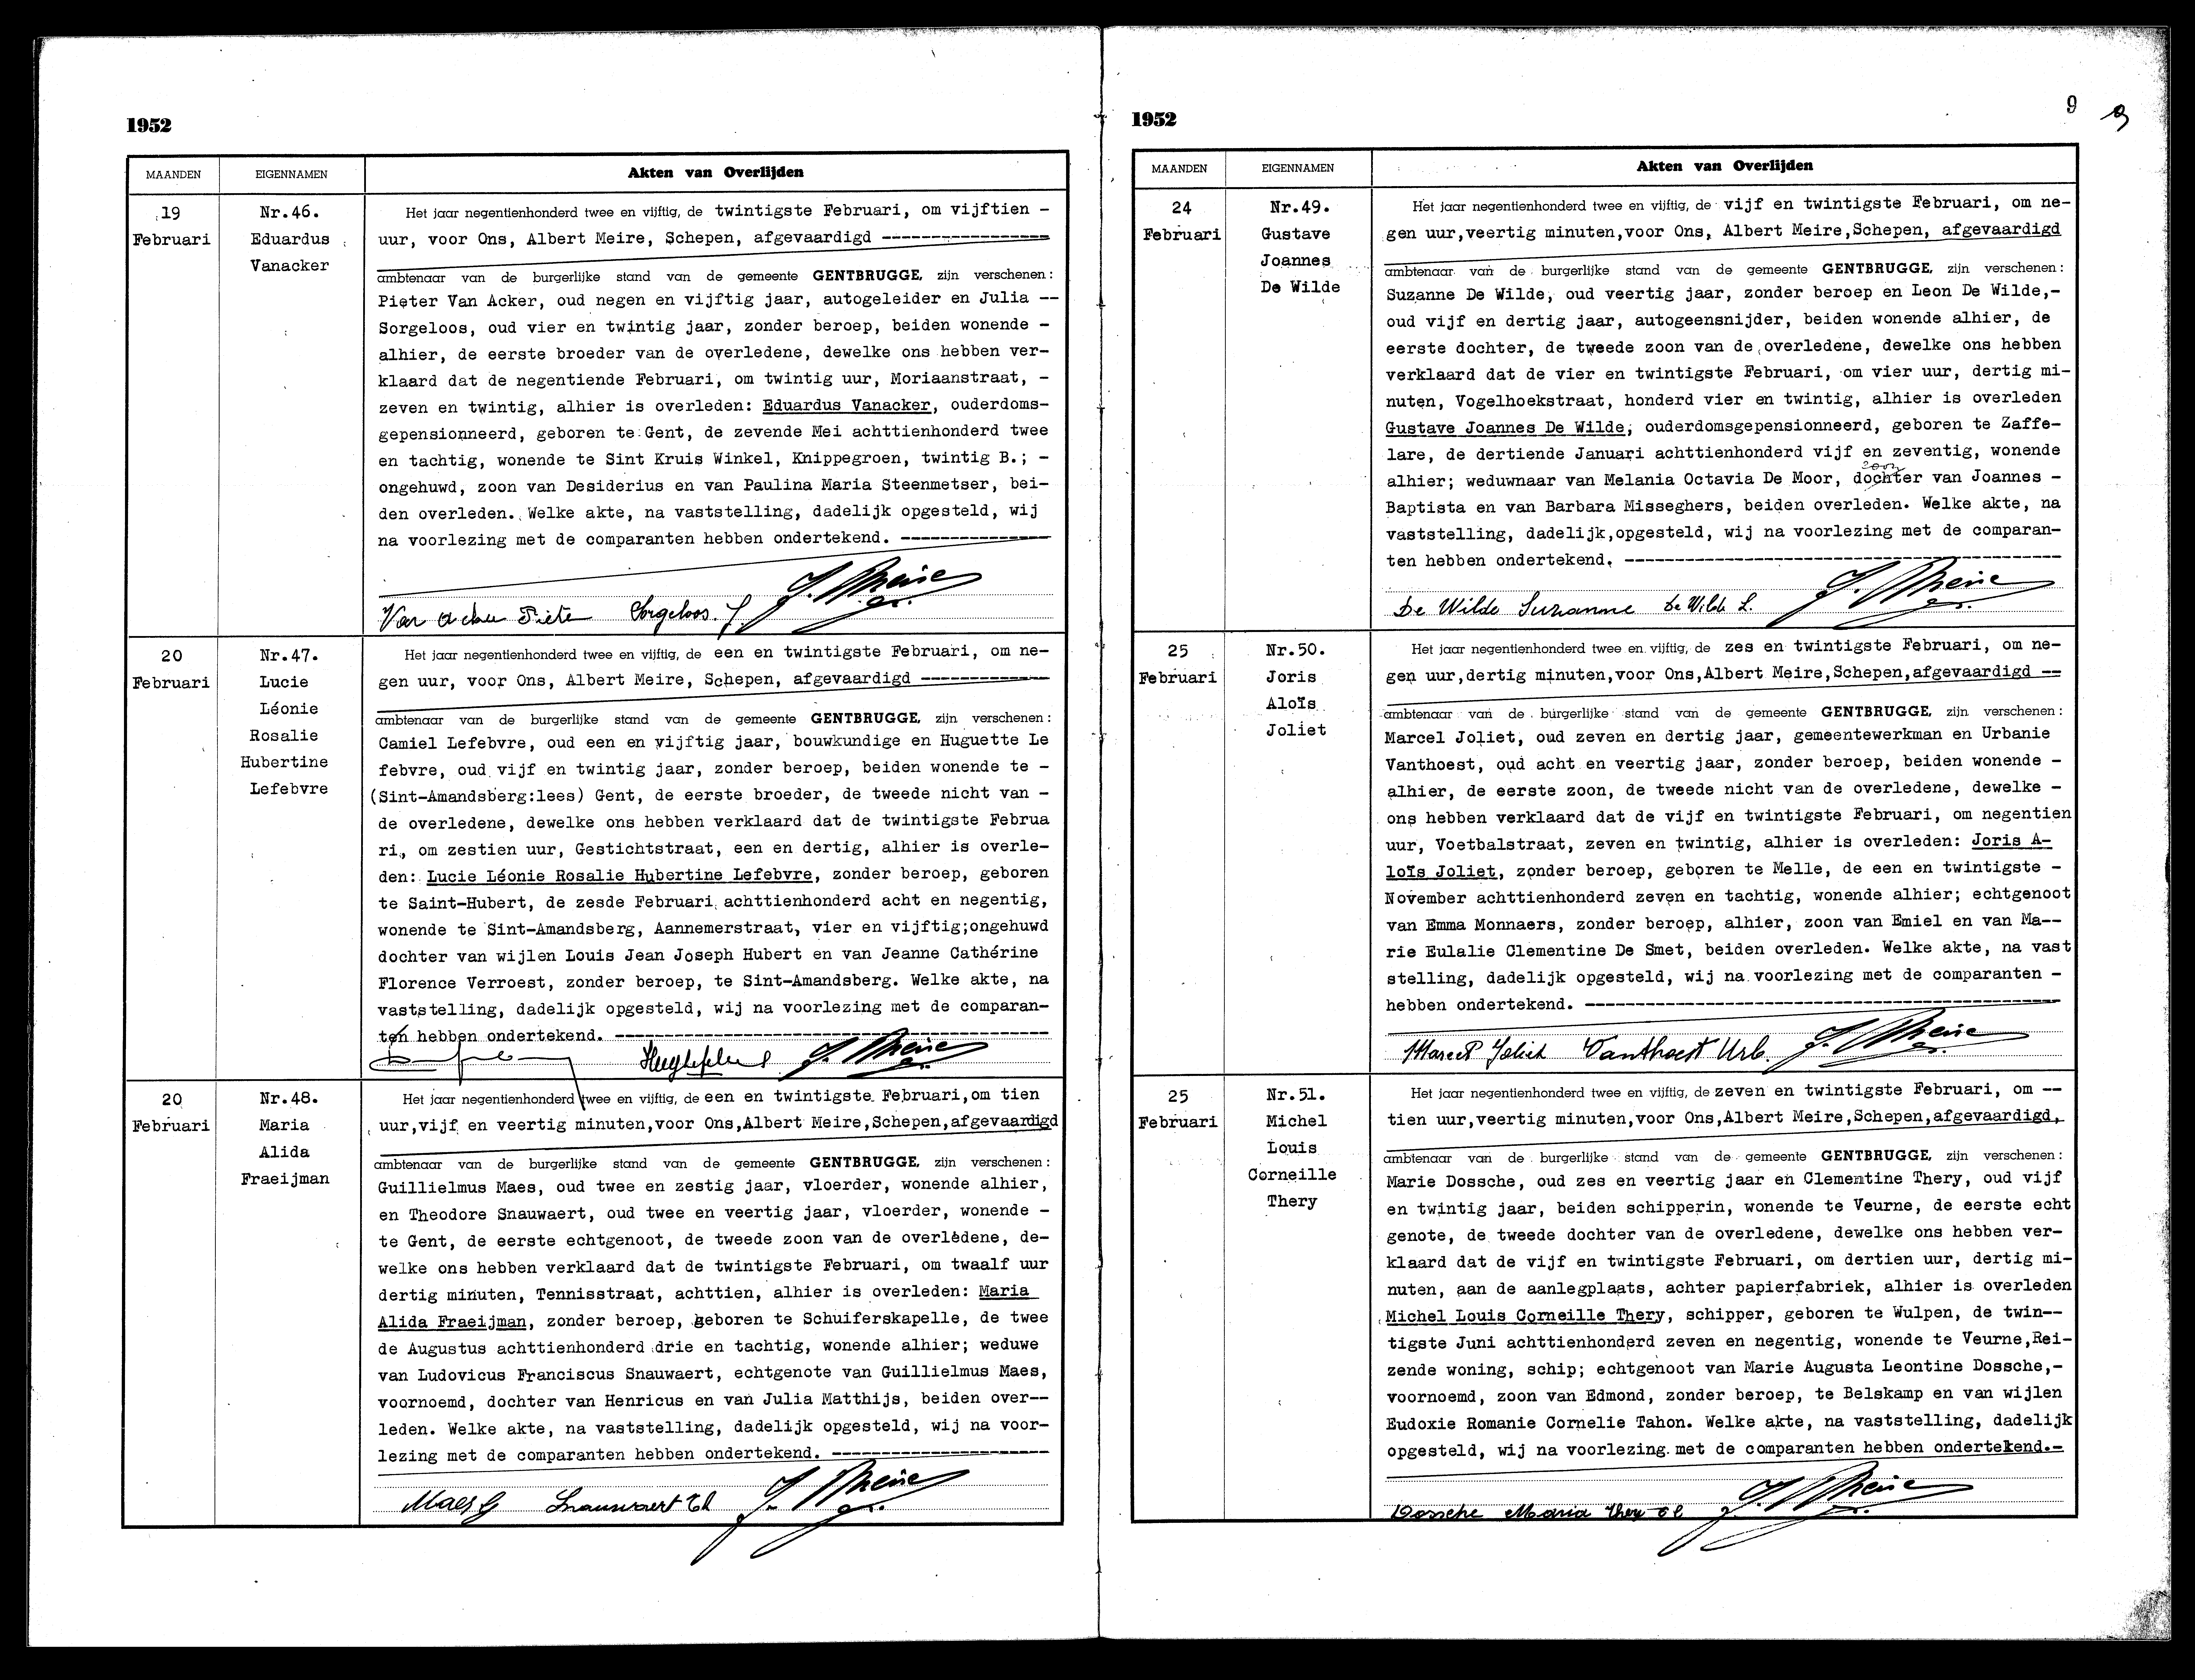 1952
MAANDEN EIGENNAMEN Akten van Overlijden
19
Februari
Nr.46.
Eduardus
Vanacker
Het jaar negentienhonderd twee en vijftig, de twintigste Februari, om vijftien -
uur, voor Ons, Albert Meire, Schepen, afgevaardigd -----------------
ambtenaar van de burgerlijke stand van de gemeente GENTBRUGGE, zijn verschenen:
Pieter Van Acker, oud negen en vijftig jaar, autogeleider en Julia --
Sorgeloos, oud vier en twintig jaar, zonder beroep, beiden wonende -
alhier, de eerste broeder van de overledene, dewelke ons hebben ver-
klaard dat de negentiende Februari, om twintig uur, Moriaanstraat, -
zeven en twintig, alhier is overleden: Eduardus Vanacker, ouderdoms-
gepensionneerd, geboren te Gent, de zevende Mei achttienhonderd twee
en tachtig, wonende te Sint Kruis Winkel, Knippegroen, twintig B.; -
ongehuwd, zoon van Desiderius en van Paulina Maria Steenmetser, bei-
den overleden. Welke akte, na vaststelling, dadelijk opgesteld, wij
na voorlezing met de comparanten hebben ondertekend. ---------------
Van Acker Pieter Sorgeloos. J. Meire
20
Februari
Nr.47.
Lucie
Léonie
Rosalie
Hubertine
Lefebvre
Het jaar negentienhonderd twee en vijftig, de een en twintigste Februari, om ne-
gen uur, voor Ons, Albert Meire, Schepen, afgevaardigd -------------
ambtenaar van de burgerlijke stand van de gemeente GENTBRUGGE, zijn verschenen:
Camiel Lefebvre, oud een en vijftig jaar, bouwkundige en Huguette Le
febvre, oud vijf en twintig jaar, zonder beroep, beiden wonende te -
(Sint-Amandsberg:lees) Gent, de eerste broeder, de tweede nicht van -
de overledene, dewelke ons hebben verklaard dat de twintigste Februa
ri, om zestien uur, Gestichtstraat, een en dertig, alhier is overle-
den: Lucie Léonie Rosalie Hubertine Lefebvre, zonder beroep, geboren
te Saint-Hubert, de zesde Februari achttienhonderd acht en negentig,
wonende te Sint-Amandsberg, Aannemerstraat, vier en vijftig;ongehuwd
dochter van wijlen Louis Jean Joseph Hubert en van Jeanne Cathérine
Florence Verroest, zonder beroep, te Sint-Amandsberg. Welke akte, na
vaststelling, dadelijk opgesteld, wij na voorlezing met de comparan-
ten hebben ondertekend. --------------------------------------------
Meire
20
Februari
Nr.48.
Maria
Alida
Fraeijman
Het jaar negentienhonderd twee en vijftig, de een en twintigste Februari,om tien
uur,vijf en veertig minuten,voor Ons,Albert Meire,Schepen,afgevaardigd
ambtenaar van de burgerlijke stand van de gemeente GENTBRUGGE, zijn verschenen:
Guillielmus Maes, oud twee en zestig jaar, vloerder, wonende alhier,
en Theodore Snauwaert, oud twee en veertig jaar, vloerder, wonende -
te Gent, de eerste echtgenoot, de tweede zoon van de overledene, de-
welke ons hebben verklaard dat de twintigste Februari, om twaalf uur
dertig minuten, Tennisstraat, achttien, alhier is overleden: Maria
Alida Fraeijman, zonder beroep, geboren te Schuiferskapelle, de twee
de Augustus achttienhonderd drie en tachtig, wonende alhier; weduwe
van Ludovicus Franciscus Snauwaert, echtgenote van Guillielmus Maes,
voornoemd, dochter van Henricus en van Julia Matthijs, beiden over--
leden. Welke akte, na vaststelling, dadelijk opgesteld, wij na voor-
lezing met de comparanten hebben ondertekend. ----------------------
Maes G Snauwaert Th Meire
9 9
1952
MAANDEN EIGENNAMEN Akten van Overlijden
24
Februari
Nr.49.
Gustave
Joannes
De Wilde
Het jaar negentienhonderd twee en vijftig, de vijf en twintigste Februari, om ne-
gen uur,veertig minuten,voor Ons, Albert Meire,Schepen, afgevaardigd
ambtenaar van de burgerlijke stand van de gemeente GENTBRUGGE, zijn verschenen:
Suzanne De Wilde, oud veertig jaar, zonder beroep en Leon De Wilde,-
oud vijf en dertig jaar, autogeensnijder, beiden wonende alhier, de
eerste dochter, de tweede zoon van de overledene, dewelke ons hebben
verklaard dat de vier en twintigste Februari, om vier uur, dertig mi-
nuten, Vogelhoekstraat, honderd vier en twintig, alhier is overleden
Gustave Joannes De Wilde, ouderdomsgepensionneerd, geboren te Zaffe-
lare, de dertiende Januari achttienhonderd vijf en zeventig, wonende
zoon
alhier; weduwnaar van Melania Octavia De Moor, dochter van Joannes -
Baptista en van Barbara Misseghers, beiden overleden. Welke akte, na
vaststelling, dadelijk,opgesteld, wij na voorlezing met de comparan-
ten hebben ondertekend. --------------------------------------------
De Wilde Suzanne De Wilde L. Meire
25
Februari
Nr.50.
Joris
Aloïs
Joliet
Het jaar negentienhonderd twee en vijftig, de zes en twintigste Februari, om ne-
gen uur,dertig minuten,voor Ons,Albert Meire,Schepen,afgevaardigd --
ambtenaar van de burgerlijke stand van de gemeente GENTBRUGGE, zijn verschenen:
Marcel Joliet, oud zeven en dertig jaar, gemeentewerkman en Urbanie
Vanthoest, oud acht en veertig jaar, zonder beroep, beiden wonende -
alhier, de eerste zoon, de tweede nicht van de overledene, dewelke -
ons hebben verklaard dat de vijf en twintigste Februari, om negentien
uur, Voetbalstraat, zeven en twintig, alhier is overleden: Joris A-
loïs Joliet, zonder beroep, geboren te Melle, de een en twintigste -
November achttienhonderd zeven en tachtig, wonende alhier; echtgenoot
van Emma Monnaers, zonder beroep, alhier, zoon van Emiel en van Ma--
rie Eulalie Clementine De Smet, beiden overleden. Welke akte, na vast
stelling, dadelijk opgesteld, wij na voorlezing met de comparanten -
hebben ondertekend. ------------------------------------------------
Marcel Joliet Vanthoest Urb. Meire
25
Februari
Nr.51.
Michel
Louis
Corneille
Thery
Het jaar negentienhonderd twee en vijftig, de zeven en twintigste Februari, om --
tien uur,veertig minuten,voor Ons,Albert Meire,Schepen,afgevaardigd,
ambtenaar van de burgerlijke stand van de gemeente GENTBRUGGE, zijn verschenen:
Marie Dossche, oud zes en veertig jaar en Clementine Thery, oud vijf
en twintig jaar, beiden schipperin, wonende te Veurne, de eerste echt
genote, de tweede dochter van de overledene, dewelke ons hebben ver-
klaard dat de vijf en twintigste Februari, om dertien uur, dertig mi-
nuten, aan de aanlegplaats, achter papierfabriek, alhier is overleden
Michel Louis Corneille Thery, schipper, geboren te Wulpen, de twin--
tigste Juni achttienhonderd zeven en negentig, wonende te Veurne,Rei-
zende woning, schip; echtgenoot van Marie Augusta Leontine Dossche,-
voornoemd, zoon van Edmond, zonder beroep, te Belskamp en van wijlen
Eudoxie Romanie Cornelie Tahon. Welke akte, na vaststelling, dadelijk
opgesteld, wij na voorlezing met de comparanten hebben ondertekend.-
Dossche Maria Thery Cl Meire